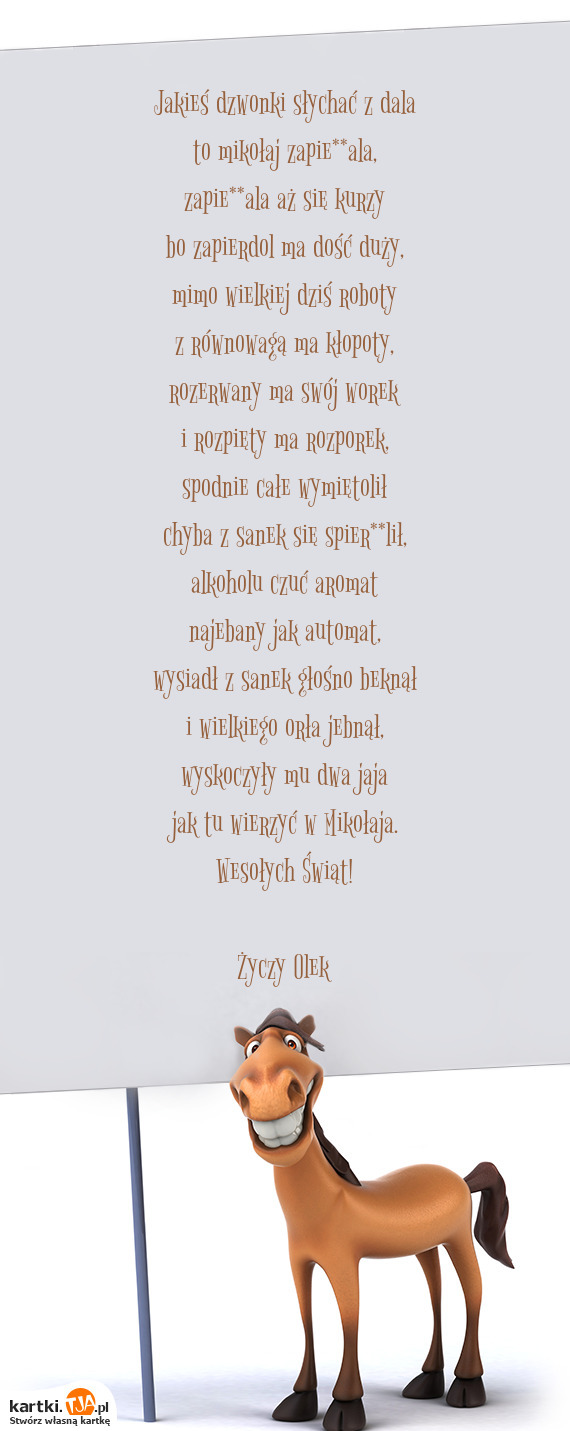 Jakieś dzwonki słychać z dala
to mikołaj zapie**ala,
zapie**ala aż się kurzy
bo zapierdol ma dość duży,
mimo wielkiej dziś roboty
z równowagą ma kłopoty,
rozerwany ma swój worek
i rozpięty ma rozporek,
spodnie całe wymiętolił
chyba z sanek się spier**lił,
alkoholu czuć aromat
najebany jak automat,
wysiadł z sanek głośno beknął
i wielkiego orła jebnął,
wyskoczyły mu dwa jaja
jak tu wierzyć w Mikołaja.
Wesołych Świąt!
Życzy Olek
kartki.TJA.pl
Stwórz własną kartkę